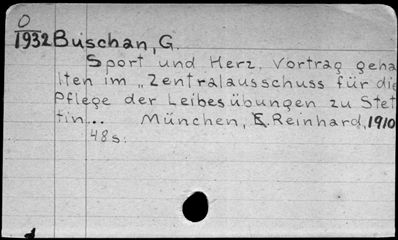 O
1932 Buschan, G.
Sport und Herz. Vortrag geha
lten im „Zentralausschuss für die
Pflege der Leibesübungen zu Stet
tin... München, E. Reinhard, 1910
48s.